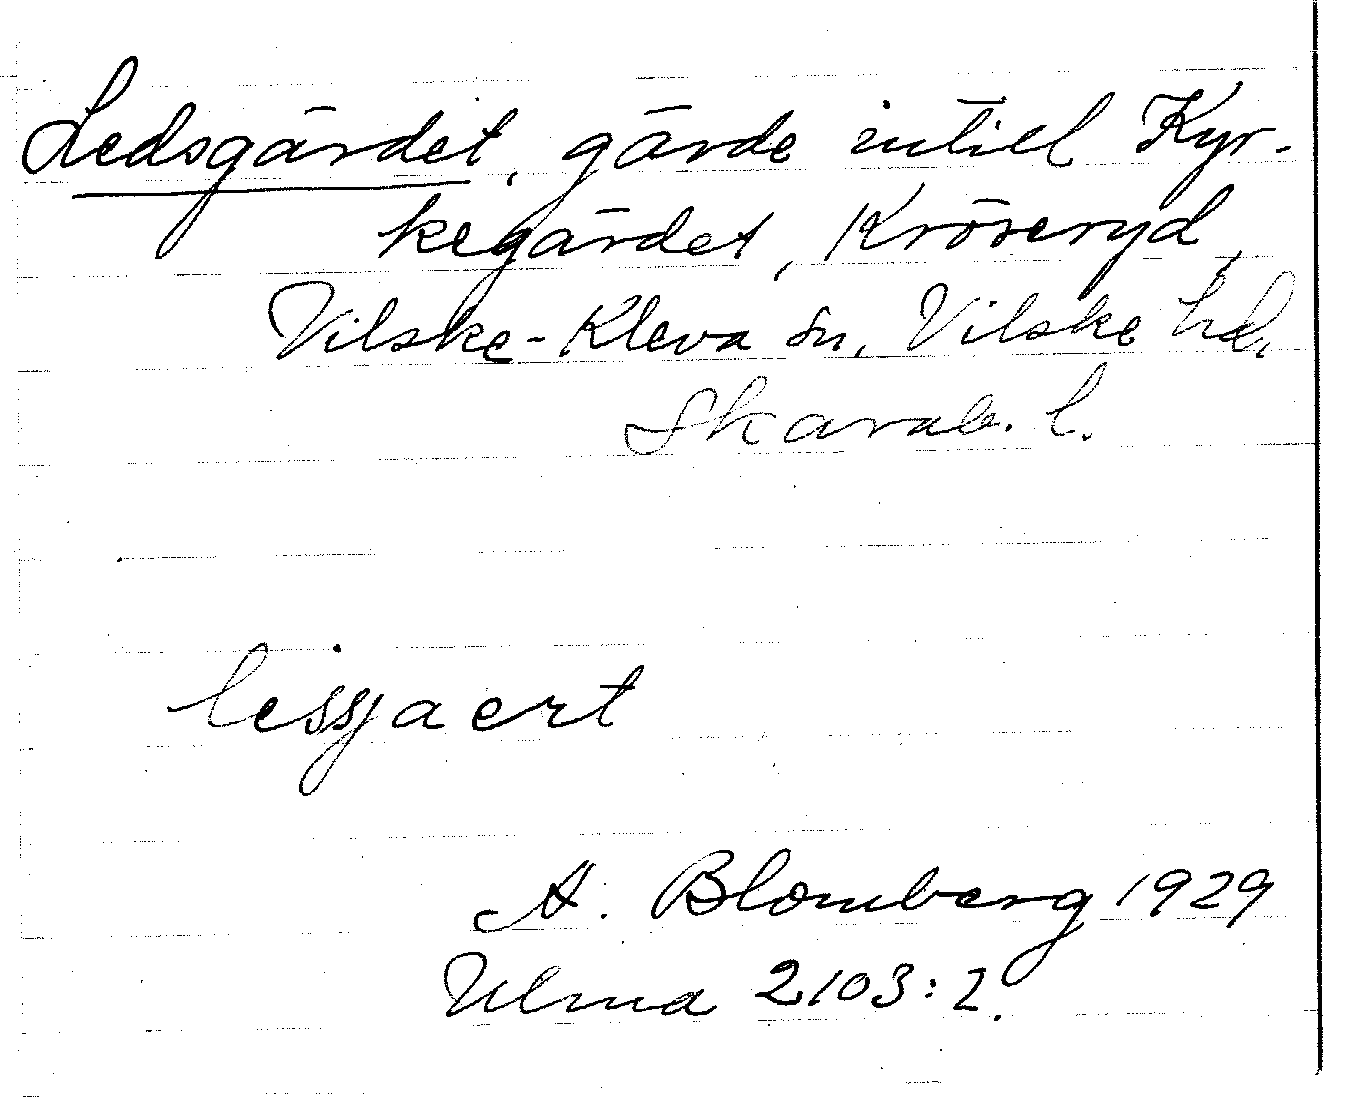 Ledsgärdet, gärde intill Kyr-
kegärdet, Kröseryd,
Vilske-Kleva sn, Vilske hd,
Skarab. l.
lessjaert
A. Blomberg 1929
Ulma 2103:2.